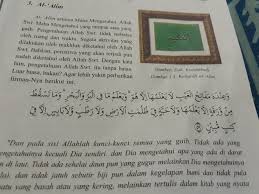 3. Al-'Alim
Al-'Alim artinya Maha Mengetahui. Allah
Swt. Maha Mengetahui yang tampak atau
yang gaib. Pengetahuan Allah Swt. tidak terbatas
oleh ruang dan waktu. Segala aktivitas yang
dilakukan oleh makhluk diketahui oleh Allah
Swt. Bahkan, peristiwa yang akan terjadi pun
sudah diketahui oleh Allah Swt. Dengan kata
lain, pengetahuan Allah Swt. itu tanpa batas.
Luar biasa, bukan? Agar lebih yakin perhatikan
firman-Nya berikut ini.
Kaligrafi al-'Alim
وَعِنْدَهُ مَفَاتِحُ الْغَيْبِ لَا يَعْلَمُهَا إِلَّا هُوَ وَيَعْلَمُ مَا فِي الْبَرِّ وَالْبَحْرِ وَمَا تَسْقُطُ
مِنْ وَرَقَةٍ إِلَّا يَعْلَمُهَا وَلَا حَبَّةٍ فِي ظُلُمَاتِ الْأَرْضِ وَلَا رَطْبٍ وَلَا يَابِسٍ إِلَّا فِي
كِتَابٍ مُبِينٍ
"Dan pada sisi Allahlah kunci-kunci semua yang gaib. Tidak ada yang
mengetahuinya kecuali Dia sendiri, dan Dia mengetahui apa yang ada di darat
di laut. Tidak ada sehelai daun pun yang gugur melainkan Dia mengetahui
dan tidak jatuh sebutir biji pun dalam kegelapan bumi dan tidak pula
sesuatu yang basah atau yang kering, melainkan tertulis dalam kitab yang nyata